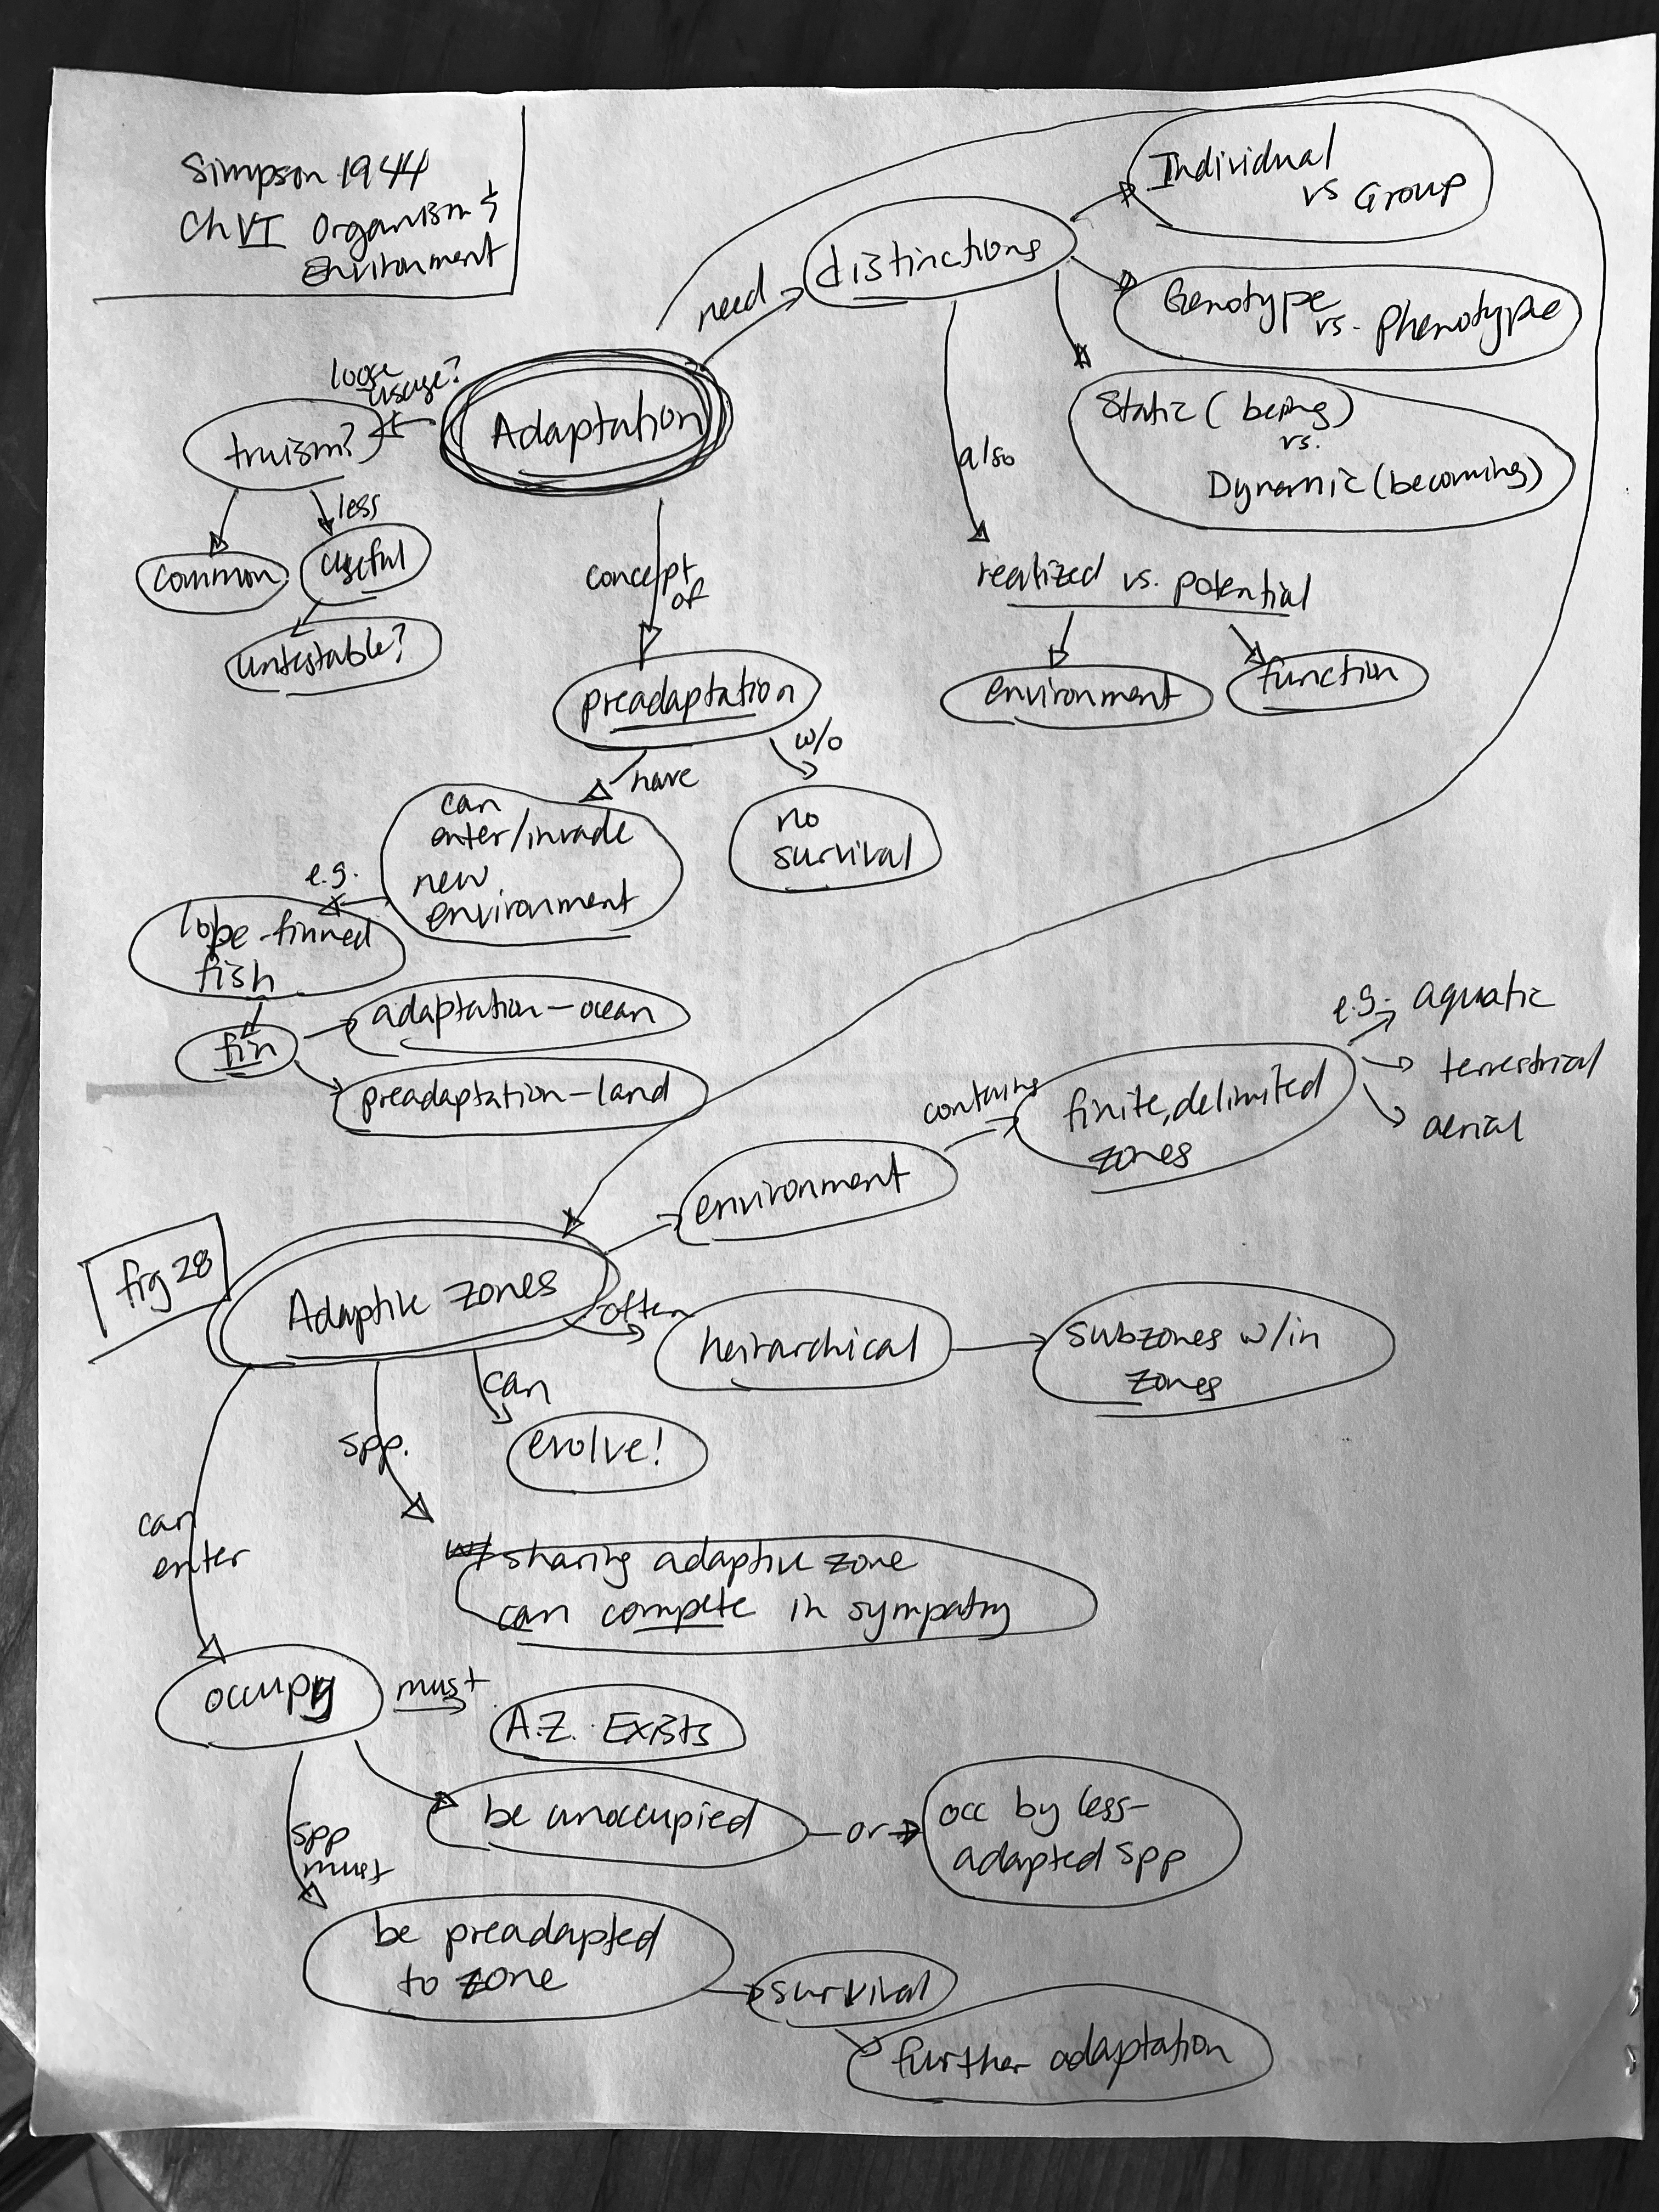 Simpson 1944
Ch VI Organism &
Environment
need
distinctions
Individual
vs Group
Genotype
vs. Phenotype
Static (being)
vs.
Dynamic (becoming)
also
realized vs. potential
environment
function
loose
usage?
Adaptation
truism?
less
common
useful
untestable?
concept
of
preadaptation
have
w/o
can
enter/invade
new
environment
no
survival
e.g.
lobe-finned
fish
fin
adaptation-ocean
preadaptation-land
fig 28
Adaptive zones
environment
contains
finite, delimited
zones
e.g. aquatic
terrestrial
aerial
often
heirarchical
subzones w/in
zones
can
evolve!
spp.
w/ sharing adaptive zone
can compete in sympatry
can
enter
occupy
must
A.Z. Exists
be unoccupied
or
occ by less-
adapted spp
spp
must
be preadapted
to zone
survival
further adaptation